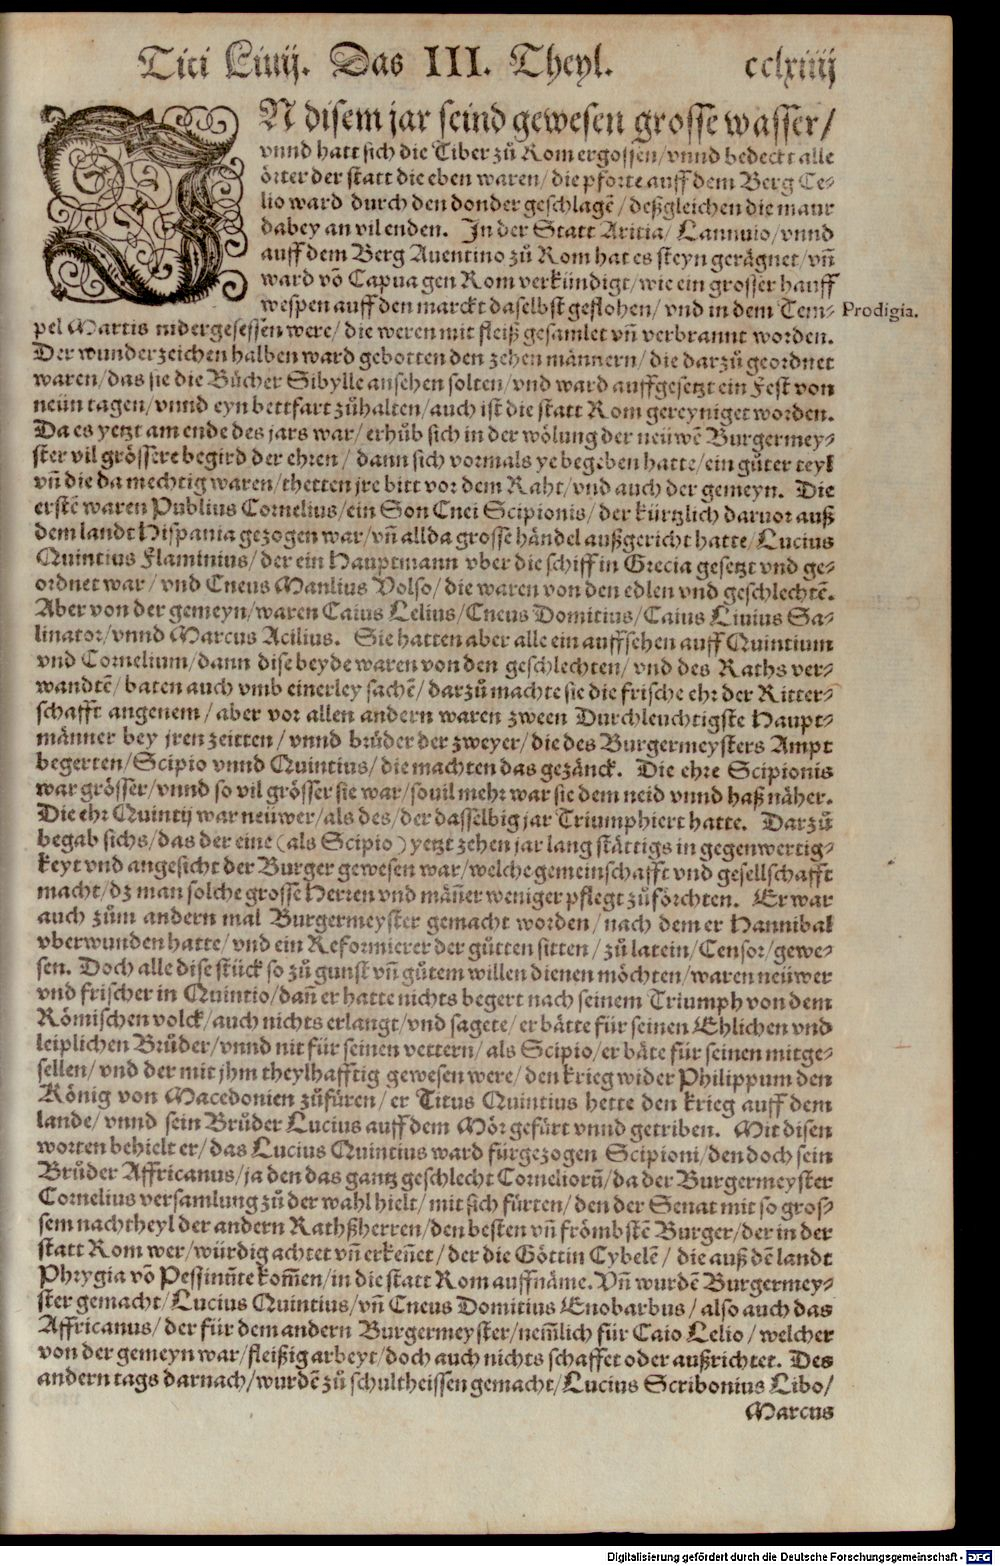 Titi Liuij. Das III. Theyl. cclxiiij
IN disem jar seind gewesen grosse wasser/
vnnd hatt sich die Tiber zů Rom ergossen/ vnnd bedeckt alle
örter der statt die eben waren/ die pforte auff dem Berg Ce-
lio ward durch den donder geschlagē/ deßgleichen die maur
dabey an vil enden. In der Statt Aritia/ Lannuio/ vnnd
auff dem Berg Auentino zů Rom hat es steyn gerägnet/ vn̄
ward vō Capua gen Rom verkündigt/ wie ein grosser hauff
wespen auff den marckt daselbst geflohen/ vnd in dem Tem-
Prodigia.
pel Martis nidergesessen were/ die weren mit fleiß gesamlet vn̄ verbrannt worden.
Der wunderzeichen halben ward gebotten den zehen männern/ die darzů geordnet
waren/ das sie die Bücher Sibylle ansehen solten/ vnd ward auffgesetzt ein Fest von
neün tagen/ vnnd eyn bettfart zůhalten/ auch ist die statt Rom gereyniget worden.
Da es yetzt am ende des jars war/ erhůb sich in der wölung der neüwē Burgermey-
ster vil grössere begird der ehren/ dann sich vormals ye begeben hatte/ ein gůter teyl
vn̄ die da mechtig waren/ thetten jre bitt vor dem Raht/ vnd auch der gemeyn. Die
erstē waren Publius Cornelius/ ein Son Cnei Scipionis/ der kürtzlich daruor auß
dem landt Hispania gezogen war/ vn̄ allda grosse händel außgericht hatte/ Lucius
Quintius Flaminius/ der ein Hauptmann vber die schiff in Grecia gesetzt vnd ge-
ordnet war/ vnd Cneus Manlius Volso/ die waren von den edlen vnd geschlechtē.
Aber von der gemeyn/ waren Caius Lelius/ Cneus Domitius/ Caius Liuius Sa-
linator/ vnnd Marcus Acilius. Sie hatten aber alle ein auffsehen auff Quintium
vnd Cornelium/ dann dise beyde waren von den geschlechten/ vnd des Raths ver-
wandtē/ baten auch vmb einerley sachē/ darzů machte sie die frische ehr der Ritter-
schafft angenem/ aber vor allen andern waren zween Durchleuchtigste Haupt-
männer bey jren zeitten/ vnnd brüder der zweyer/ die des Burgermeysters Ampt
begerten/ Scipio vnnd Quintius/ die machten das gezänck. Die ehre Scipionis
war grösser/ vnnd so vil grösser sie war/ souil mehr war sie dem neid vnnd haß näher.
Die ehr Quintij war neüwer/ als des/ der dasselbig jar Triumphiert hatte. Darzů
begab sichs/ das der eine (als Scipio) yetzt zehen jar lang stättigs in gegenwertig-
keyt vnd angesicht der Burger gewesen war/ welche gemeinschafft vnd gesellschafft
macht/ dz man solche grosse Herren vnd mäñer weniger pflegt zůförchten. Er war
auch zům andern mal Burgermeyster gemacht worden/ nach dem er Hannibal
vberwunden hatte/ vnd ein Reformierer der gůtten sitten/ zů latein/ Censor/ gewe-
sen. Doch alle dise stück so zů gunst vn̄ gůtem willen dienen möchten/ waren neüwer
vnd frischer in Quintio/ dañ er hatte nichts begert nach seinem Triumph von dem
Römischen volck/ auch nichts erlangt/ vnd sagete/ er bätte für seinen Ehlichen vnd
leiplichen Brůder/ vnnd nit für seinen vettern/ als Scipio/ er bäte für seinen mitge-
sellen/ vnd der mit jhm theylhafftig gewesen were/ den krieg wider Philippum den
König von Macedonien zůfüren/ er Titus Quintius hette den krieg auff dem
lande/ vnnd sein Brůder Lucius auff dem Mör gefürt vnnd getriben. Mit disen
worten behielt er/ das Lucius Quintius ward fürgezogen Scipioni/ den doch sein
Brůder Affricanus/ ja den das gantz geschlecht Corneliorū/ da der Burgermeyster
Cornelius versamlung zů der wahl hielt/ mit sich fürten/ den der Senat mit so gros-
sem nachtheyl der andern Rathßherren/ den besten vn̄ frömbstē Burger/ der in der
statt Rom wer/ würdig achtet vn̄ erkeñet/ der die Göttin Cybelē/ die auß dē landt
Phrygia vō Pessinūte kom̄en/ in die statt Rom auffnäme. Vn̄ wurdē Burgermey-
ster gemacht/ Lucius Quintius/ vn̄ Cneus Domitius Enobarbus/ also auch das
Affricanus/ der für dem andern Burgermeyster/ nem̄lich für Caio Lelio/ welcher
von der gemeyn war/ fleißig arbeyt/ doch auch nichts schaffet oder außrichtet. Des
andern tags darnach/ wurdē zů schultheissen gemacht/ Lucius Scribonius Libo/
Marcus
Digitalisierung gefördert durch die Deutsche Forschungsgemeinschaft - DFG